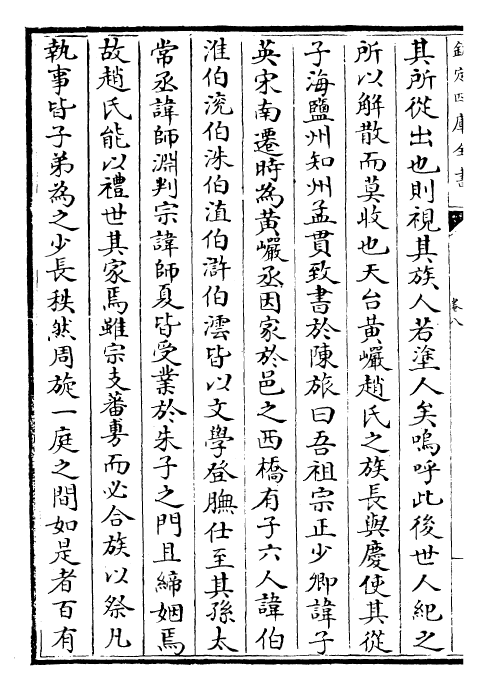 欽定四庫全書
卷八
其所從出也則視其族人若塗人矣嗚呼此後世人紀之
所以解散而莫收也天台黃巖趙氏之族長與慶使其從
子海鹽州知州孟貫致書於陳旅曰吾祖宗正少卿諱子
英宋南遷時為黃巖丞因家於邑之西橋有子六人諱伯
淮伯浣伯洙伯淔伯滸伯澐皆以文學登膴仕至其孫太
常丞諱師淵判宗諱師夏皆受業於朱子之門且締姻焉
故趙氏能以禮世其家焉雖宗支蕃旉而必合族以祭凡
執事皆子弟為之少長秩然周旋一庭之間如是者百有